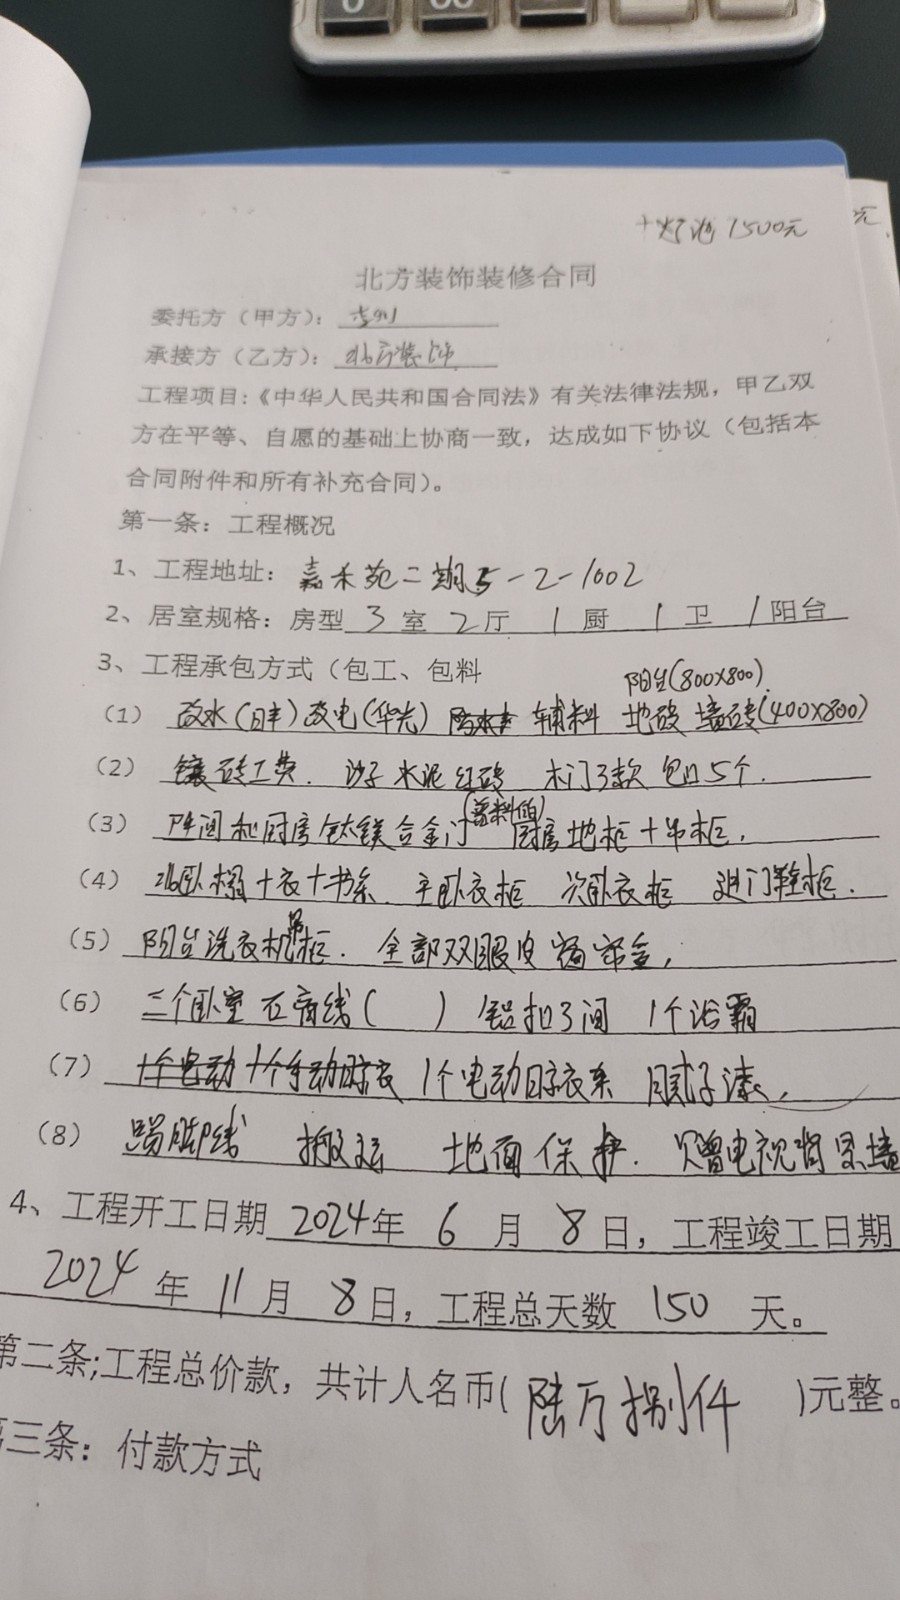 0 00
元
+ 1500元
北方装饰装修合同
委托方（甲方）：
承接方（乙方）：北方装饰
工程项目：《中华人民共和国合同法》有关法律法规，甲乙双
方在平等、自愿的基础上协商一致，达成如下协议（包括本
合同附件和所有补充合同）。
第一条：工程概况
1、工程地址：嘉禾苑二期5-2-1002
2、居室规格：房型 3 室 2 厅 1 厨 1 卫 1 阳台
3、工程承包方式（包工、包料
阳台(800x800)
（1） 改水(日丰) 改电(华光) 防水 辅料 地砖 墙砖(400x800)
（2） 镶砖工费. 沙子 水泥 红砖 木门3款 包口5个.
（3） 卫生间和厨房 钛镁合金门 厨房地柜+吊柜.
（4） 北卧榻+衣+书 主卧衣柜 次卧衣柜 进门鞋柜.
（5） 阳台洗衣机吊柜. 全部双眼皮 窗帘盒,
（6） 三个卧室石膏线( ) 铝扣3间 1个浴霸
（7） 1个电动 1个手动晾衣 1个电动晾衣 腻子漆.
（8） 踢脚线 搬运 地面保护. 赠电视背景墙
4、工程开工日期 2024年 6 月 8 日，工程竣工日期
2024 年 11 月 8 日，工程总天数 150 天。
第二条;工程总价款，共计人名币( 陆万捌仟 )元整。
第三条：付款方式